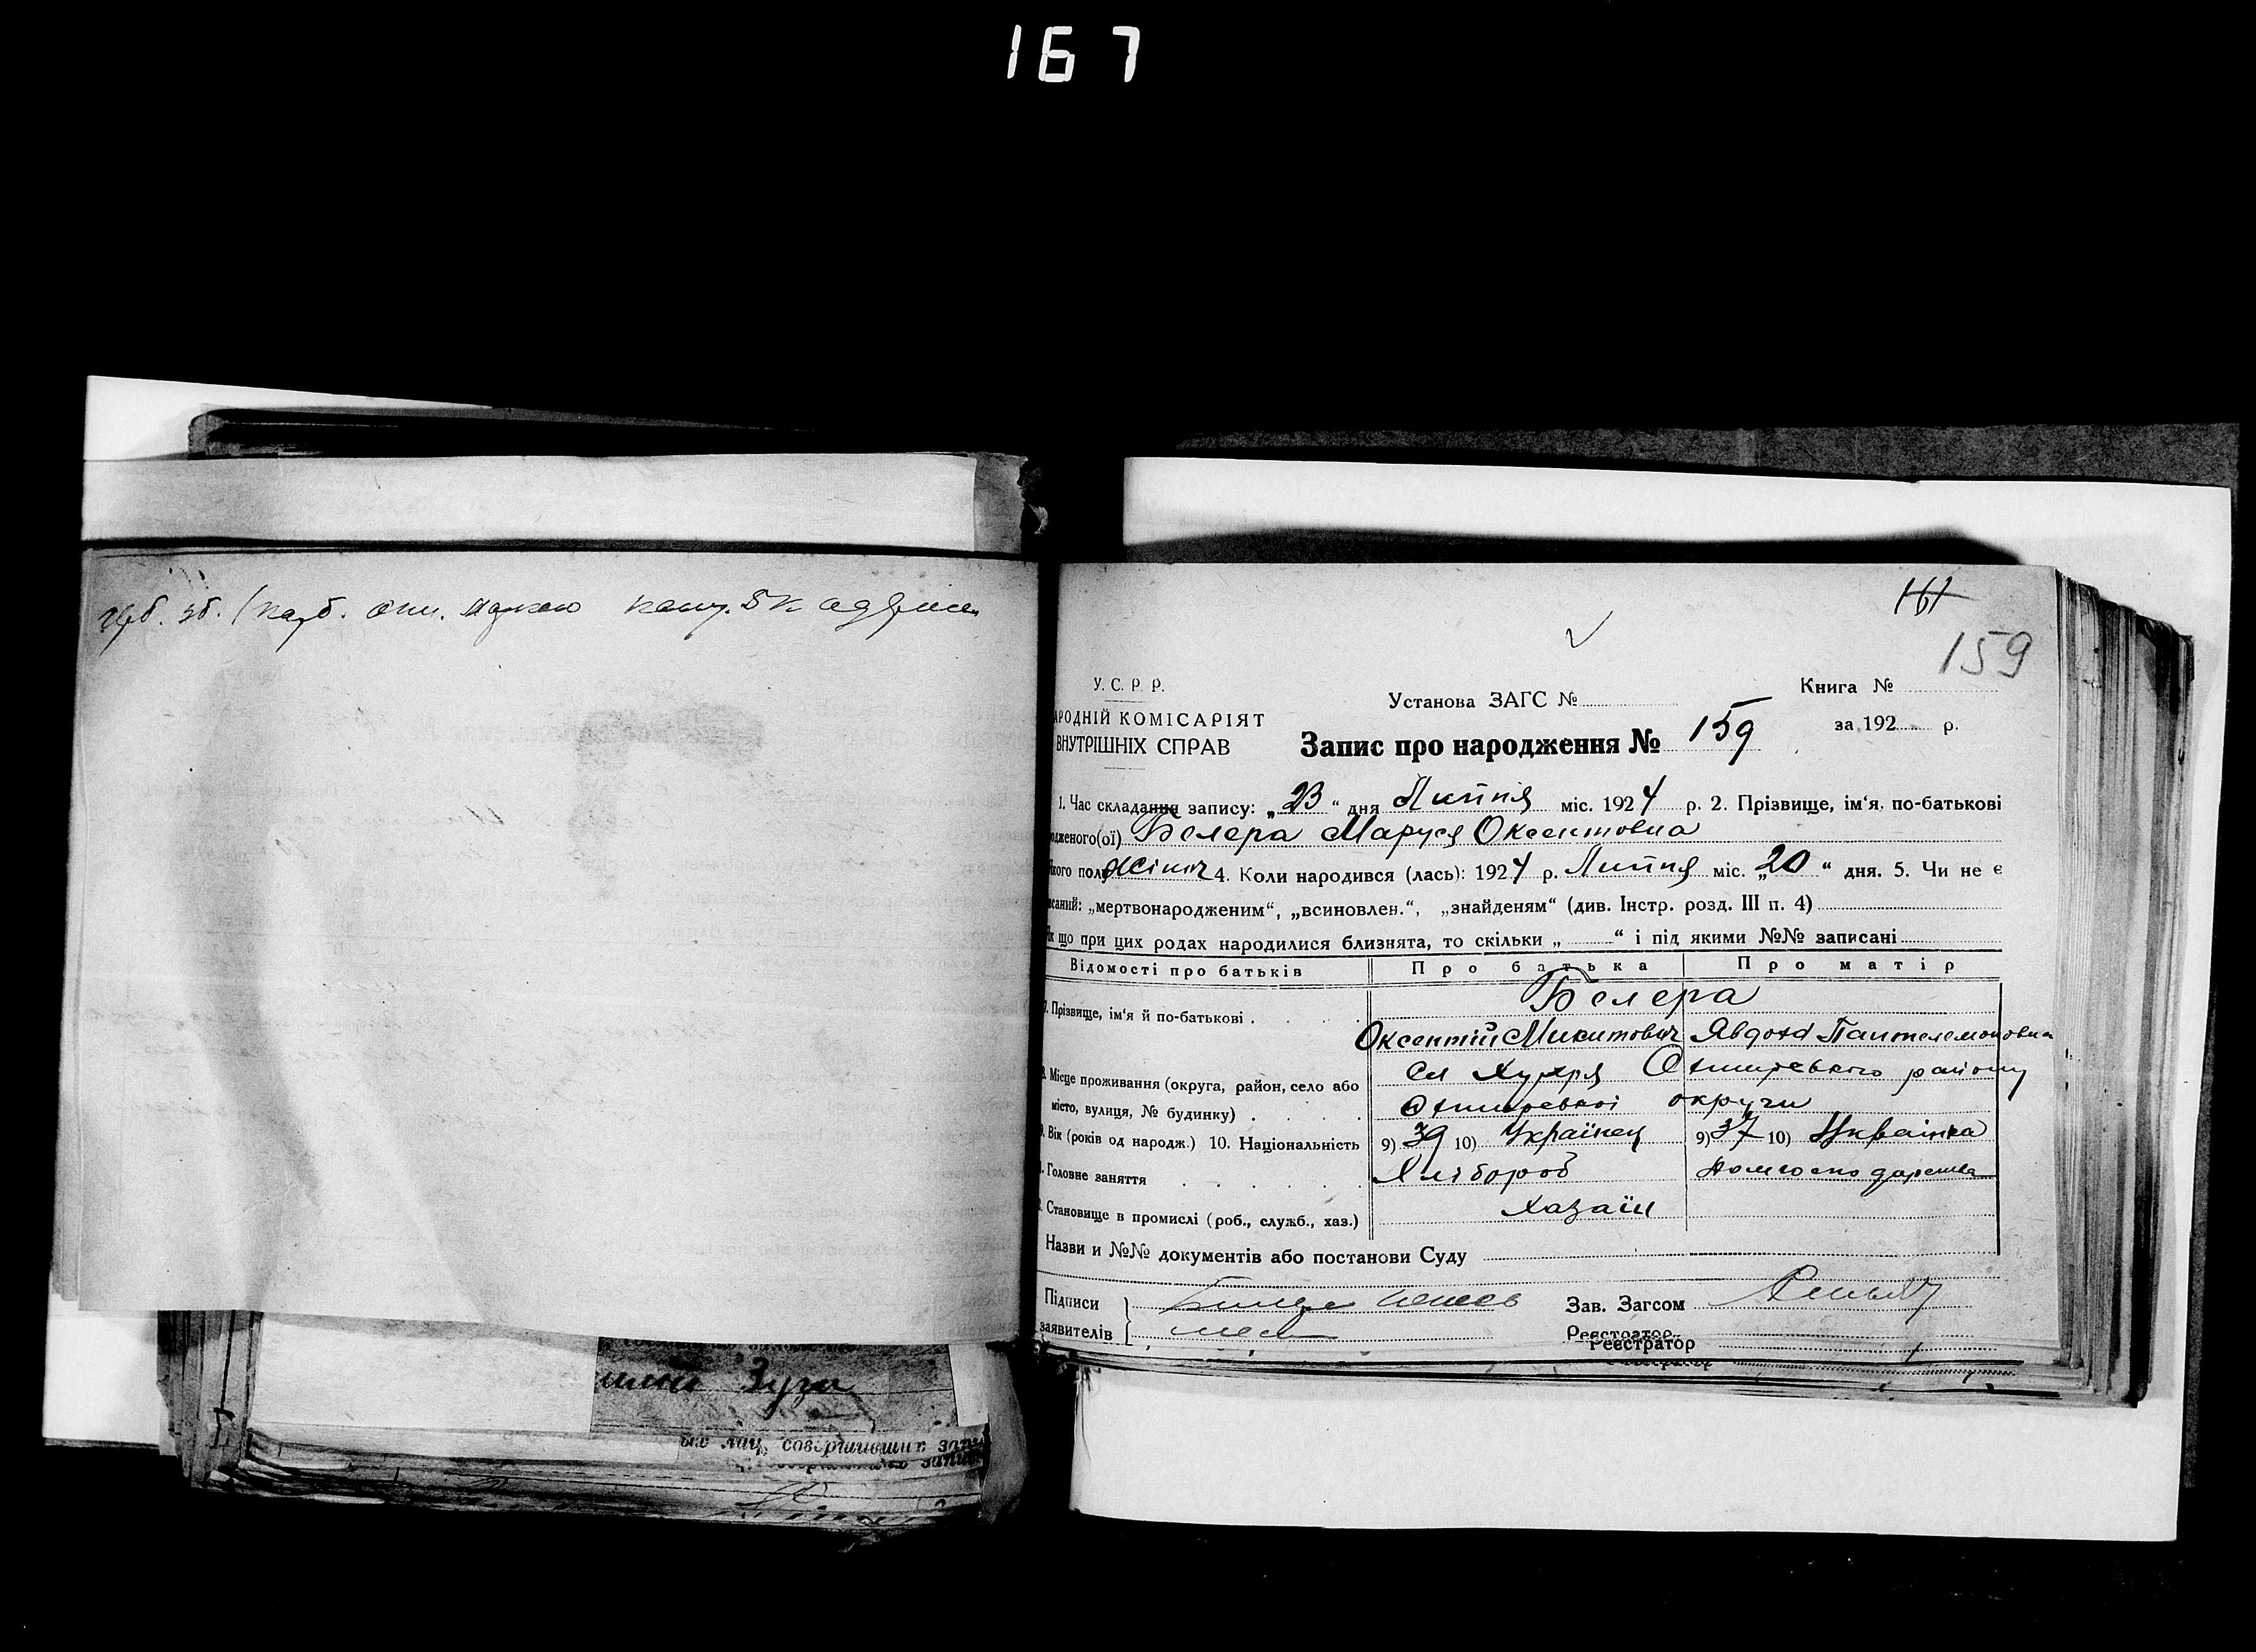 167
161
159
У. С. Р. Р.
Установа ЗАГС №
Книга №
АРОДНІЙ КОМІСАРІЯТ
ВНУТРІШНІХ СПРАВ
Запис про народження № 159
за 192 р.
1. Час складання запису: „23“ дня Липня міс. 1924 р. 2. Прізвище, ім'я, по-батькові
одженого(ої) Белера Маруся Оксентовна
якого полу жіноч 4. Коли народився (лась): 1924 р. Липня міс. „20“ дня. 5. Чи не є
исаний: „мертвонародженим“, „всиновлен.“, „знайденям“ (див. Інстр. розд. III п. 4)
Як що при цих родах народилися близнята, то скільки „ “ і під якими №№ записані
Відомості про батьків Про батька Про матір
Белера
7. Прізвище, ім'я й по-батькові
Оксентій Микитович Явдоха Пантелемоновна
8. Місце проживання (округа, район, село або
місто, вулиця, № будинку)
Сл Хухря Охтирського району
Охтирської округи
9. Вік (років од народж.) 10. Національність 9) 39 10) Українец 9) 37 10) Українка
Головне заняття Хлібороб домгосподарства
Становище в промислі (роб., служб., хаз.) хазаїн
Назви и №№ документів або постанови Суду
Підписи
заявителів
Зав. Загсом
Реєстратор
Реєстратор
лиц, совершивших